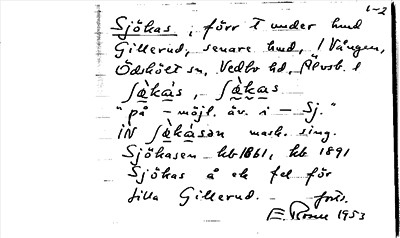 1-2
Sjökas, förr T under hmd
Gillerud, senare hmd, i Vången,
Ödskölt sn, Vedbo hd, Älvsb. l
"på – möjl. äv. i – Sj."
IN mask. sing.
Sjökasen hb 1861, hb 1891
Sjökas å ek fel för
Lilla Gillerud. – forts.
E. Rosell 1953